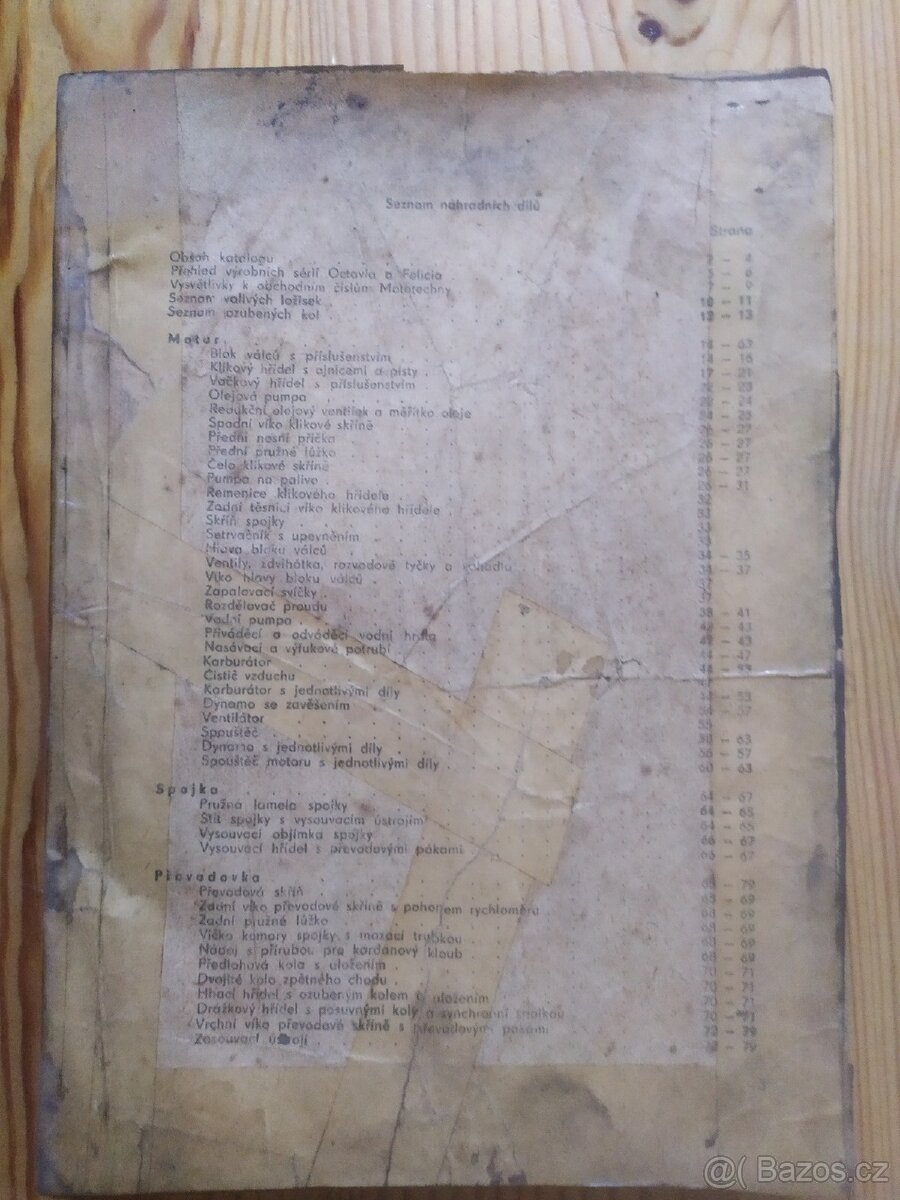 Seznam náhradních dílů
Strana
Obsah katalogu
Přehled výrobních sérií Octavia a Felicia
Vysvětlivky k obchodním číslům Mototechny
Seznam valivých ložisek 10 — 11
Seznam ozubených kol 12 — 13
Motor
Blok válců s příslušenstvím 14 — 16
Klikový hřídel s ojnicemi a písty 17 — 21
Vačkový hřídel s příslušenstvím
Olejová pumpa
Redukční olejový ventilek a měřítko oleje
Spodní víko klikové skříně
Přední nosní příčka
Přední pružné lůžko
Čelo klikové skříně
Pumpa na palivo
Řemenice klikového hřídele
Zadní těsnicí víko klikového hřídele
Skříň spojky
Setrvačník s upevněním
Hlava bloku válců 34 — 35
Ventily, zdvihátka, rozvodové tyčky a vahadla 34 — 37
Víko hlavy bloku válců
Zapalovací svíčky
Rozdělovač proudu 38 — 41
Vodní pumpa 42 — 43
Přiváděcí a odváděcí vodní hrdla 42 — 43
Nasávací a výfukové potrubí
Karburátor
Čistič vzduchu
Karburátor s jednotlivými díly
Dynamo se zavěšením
Ventilátor
Spouštěč
Dynamo s jednotlivými díly 56 — 57
Spouštěč motoru s jednotlivými díly 60 — 63
Spojka 64 — 67
Pružná lamela spojky 64 — 65
Štít spojky s vysouvacím ústrojím 64 — 65
Vysouvací objímka spojky 66 — 67
Vysouvací hřídel s převodovými pákami 66 — 67
Převodovka 68 — 79
Převodová skříň 68 — 69
Zadní víko převodové skříně s pohonem rychloměru 68 — 69
Zadní pružné lůžko 68 — 69
Víčko komory spojky s mazací trubkou 68 — 69
Náboj s přírubou pro kardanový kloub 68 — 69
Předlohová kola s uložením 70 — 71
Dvojité kolo zpětného chodu 70 — 71
Hnací hřídel s ozubeným kolem a uložením 70 — 71
Drážkový hřídel s posuvnými koly a synchronní spojkou 70 — 71
Vrchní víko převodové skříně s převodovým pákami 72 — 79
Zasouvací ústrojí 72 — 79
@( Bazos.cz